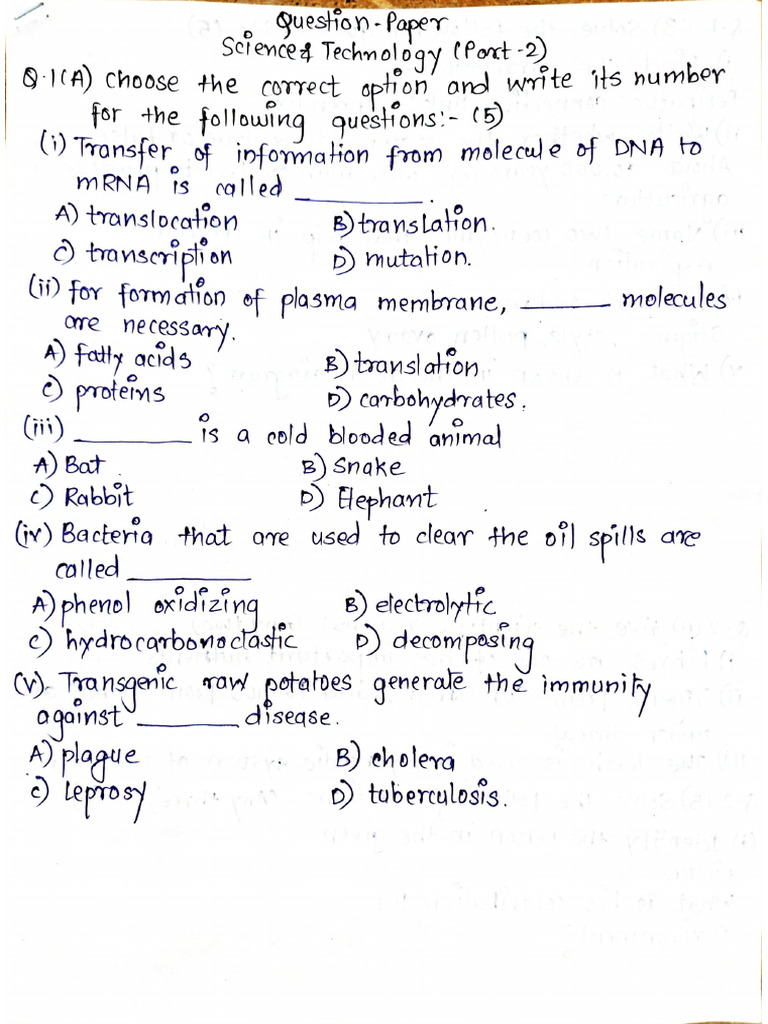 Question-Paper
Science & Technology (Part-2)
Q.1(A) Choose the correct option and write its number
for the following questions:- (5)
(i) Transfer of information from molecule of DNA to
mRNA is called ________.
A) translocation B) translation.
C) transcription D) mutation.
(ii) for formation of plasma membrane, ______ molecules
are necessary.
A) fatty acids B) translation
C) proteins D) carbohydrates.
(iii) ________ is a cold blooded animal
A) Bat B) Snake
C) Rabbit D) Elephant
(iv) Bacteria that are used to clear the oil spills are
called ________
A) phenol oxidizing B) electrolytic
C) hydrocarbonoclastic D) decomposing
(v) Transgenic raw potatoes generate the immunity
against _______ disease.
A) plague B) cholera
C) Leprosy D) tuberculosis.